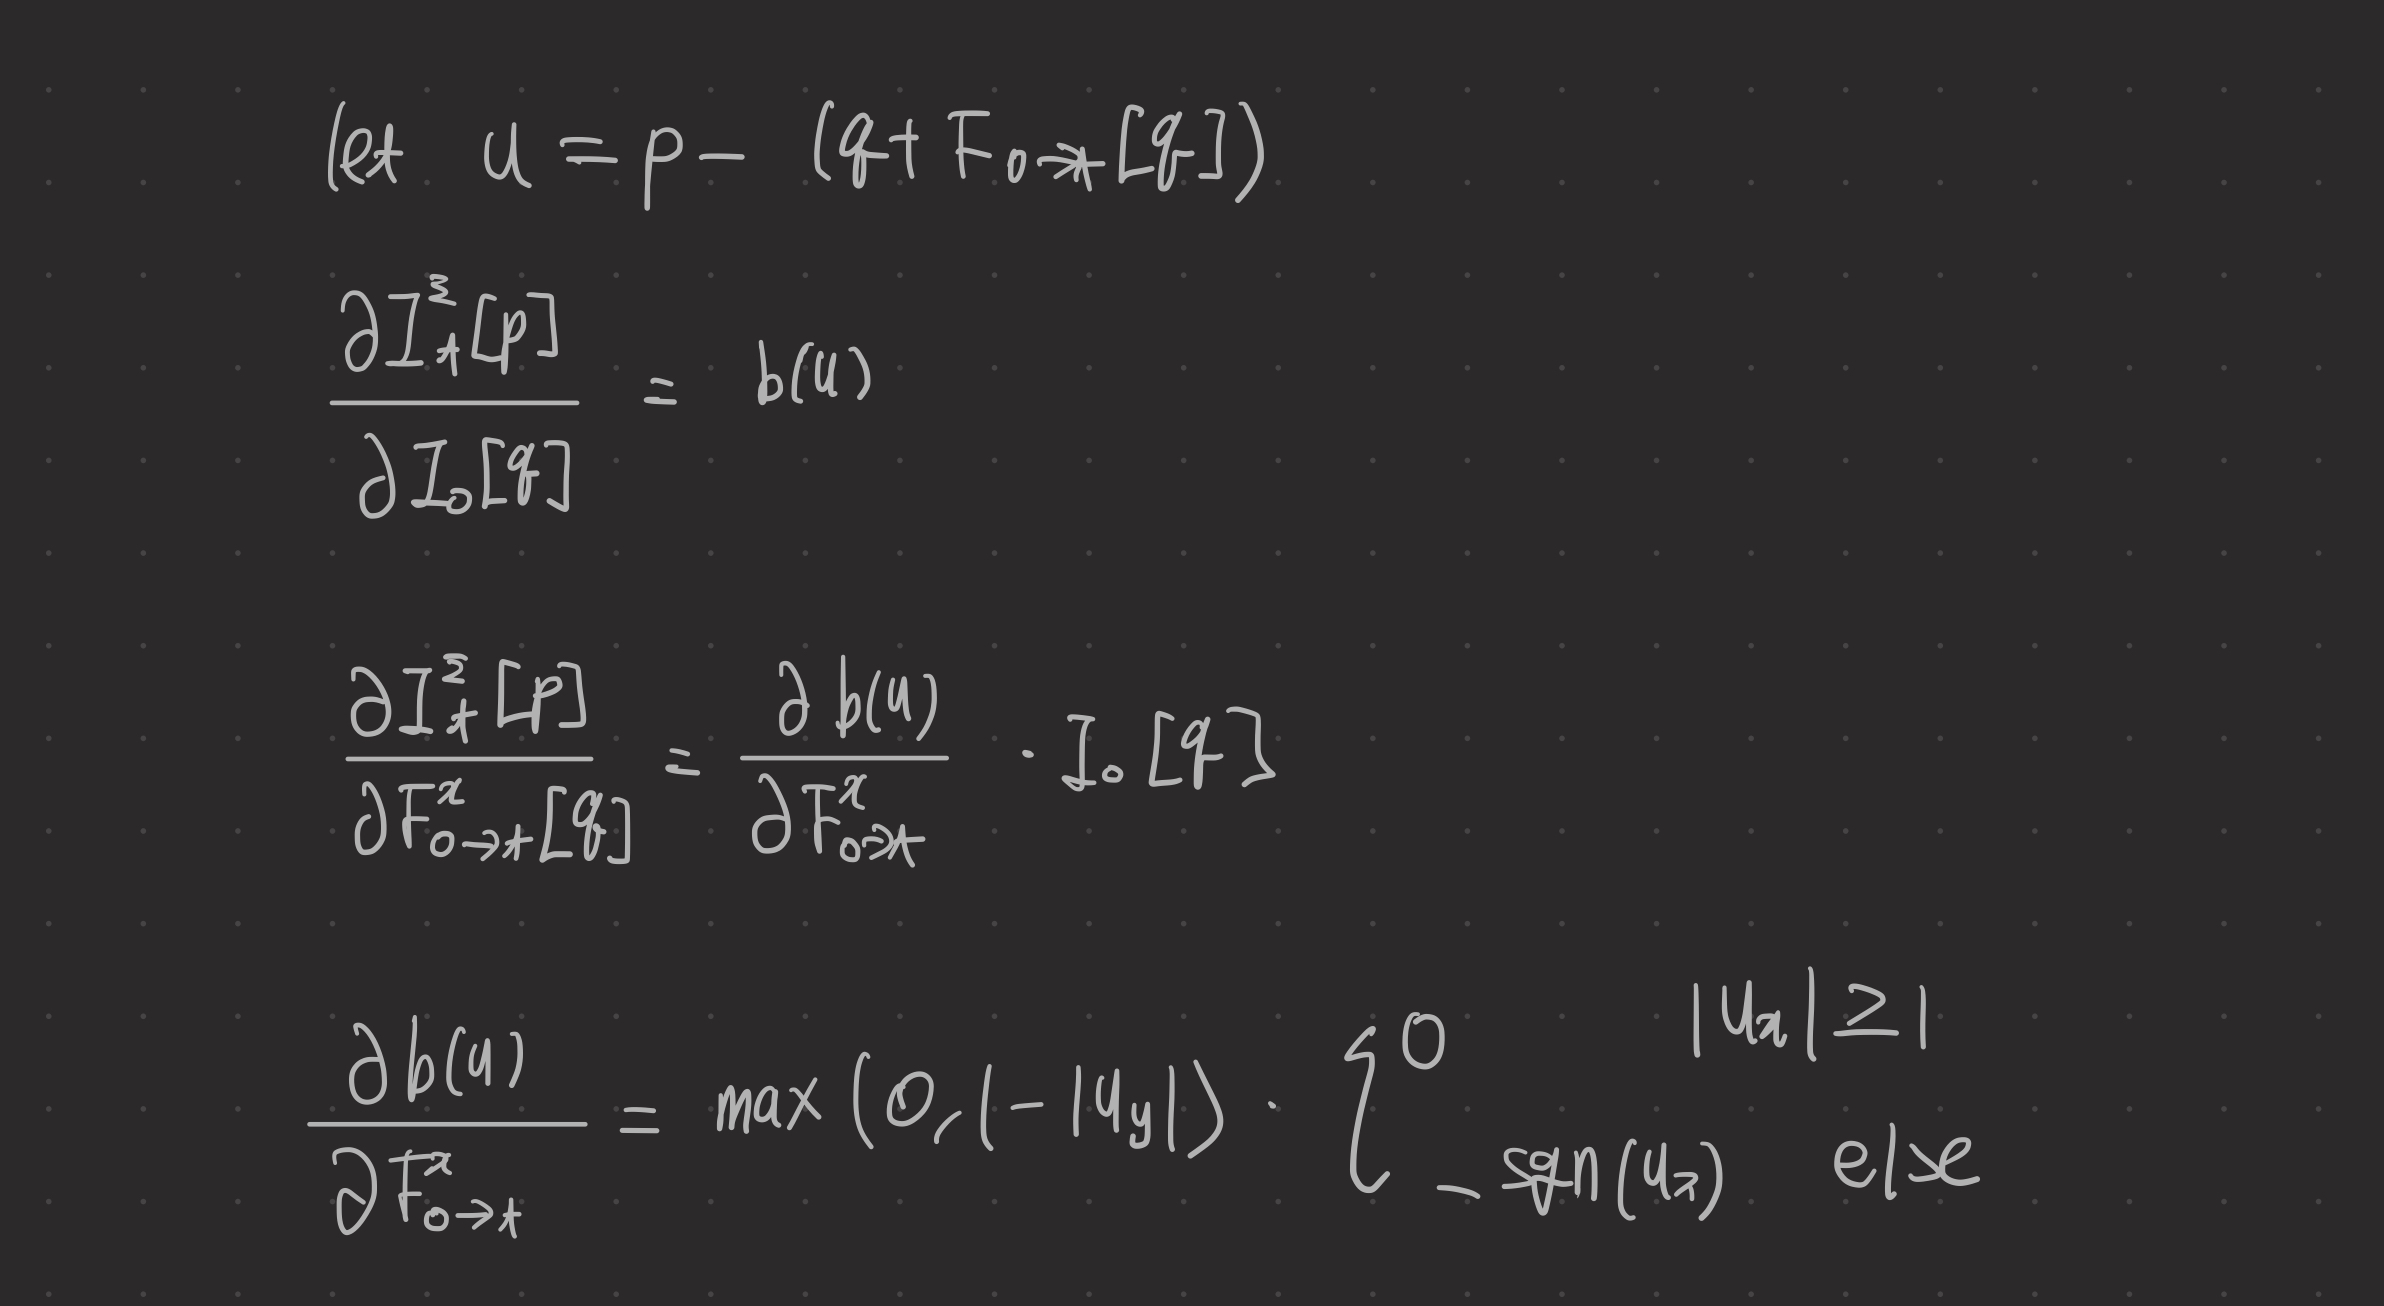 let u = p - (q + F_{0→t}[q])
∂I_t^Σ[p] / ∂I_0[q] = b(u)
∂I_t^Σ[p] / ∂F_{0→t}^x[q] = ∂b(u) / ∂F_{0→t}^x · I_0[q]
∂b(u) / ∂F_{0→t}^x = max(0, 1 - |u_y|) · { 0 |u_x| ≥ 1
- sgn(u_x) else